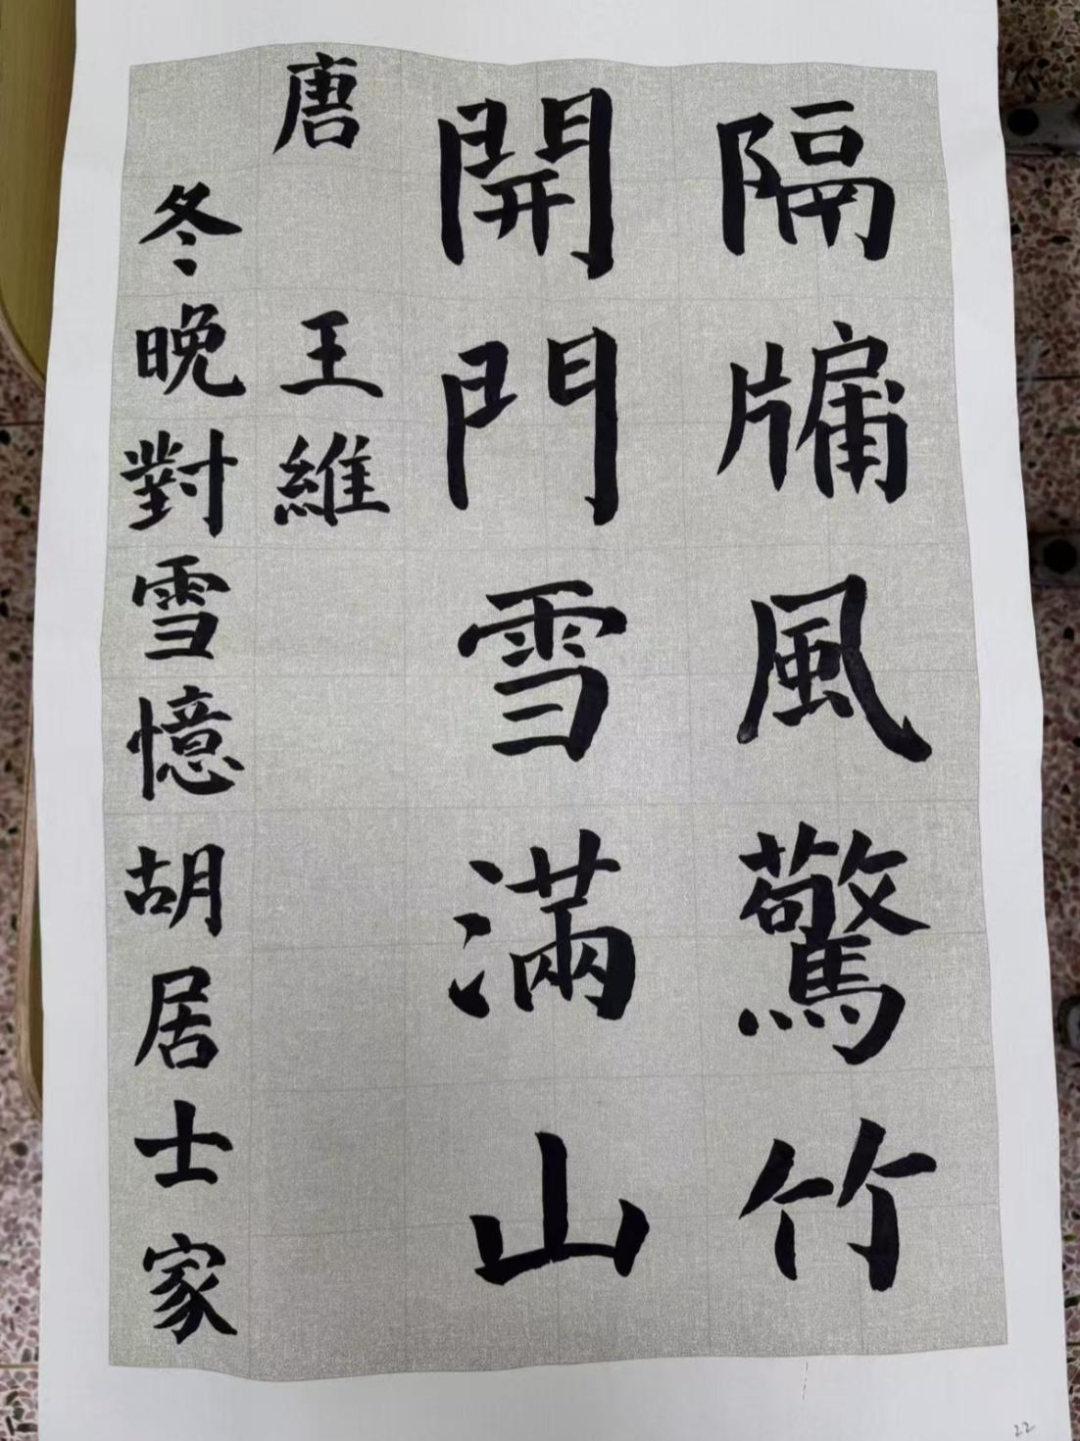 隔牗風驚竹
開門雪滿山
唐 王維
冬晚對雪憶胡居士家
22